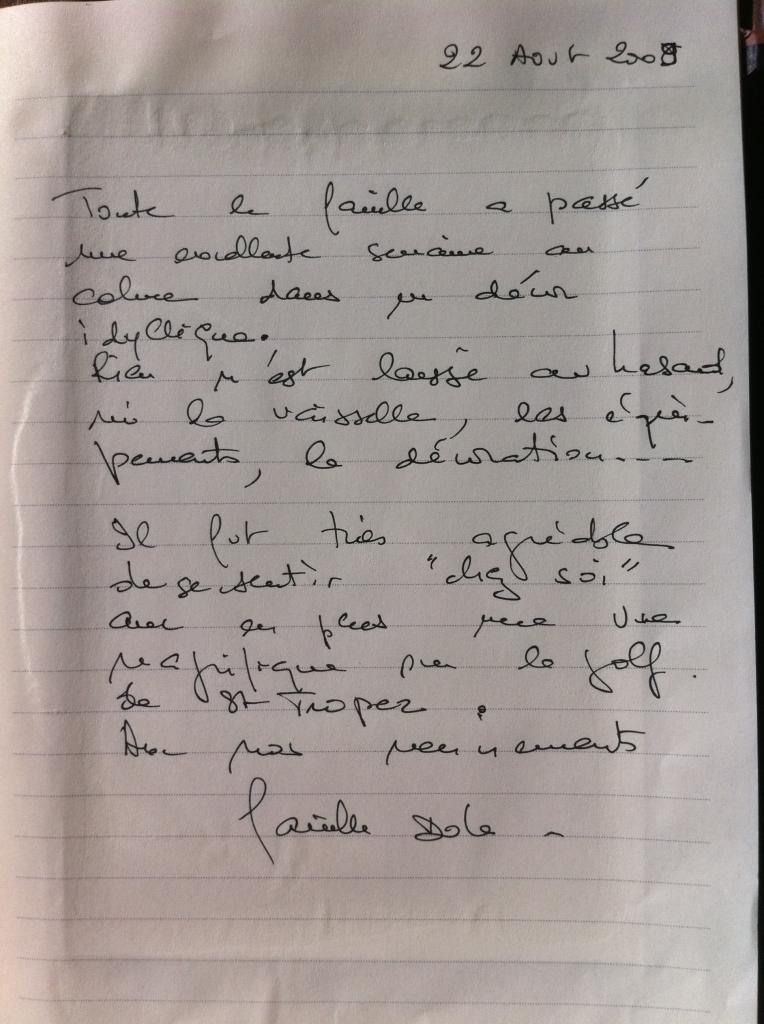 22 Aout 2008
Toute la famille a passé
une excellente semaine au
calme dans un décor
idyllique.
Rien n'est laissé au hasard,
ni la vaisselle, les équi-
pements, la décoration....
Il fut très agréable
de se sentir "chez soi"
avec en plus une vue
magnifique sur le golf
de St Tropez.
Avec nos remerciements
famille Dole -